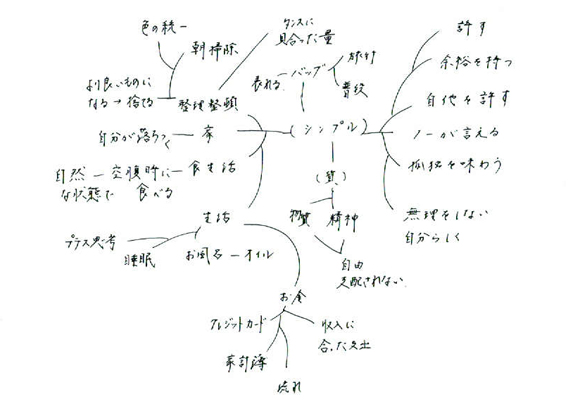 色の統一
朝掃除
タンスに
見合った量
より良いものに
なる→捨てる
整理整頓
表れる
バッグ
旅行
普段
(シンプル)
許す
余裕を持つ
自他を許す
ノーが言える
孤独を味わう
無理をしない
自分らしく
自分が落ちつく
家
自然
な状態で
空腹時に
食べる
食生活
(質)
物質
精神
自由
支配されない
生活
プラス思考
睡眠
お風呂
オイル
お金
クレジットカード
家計簿
流れ
収入に
合った支出